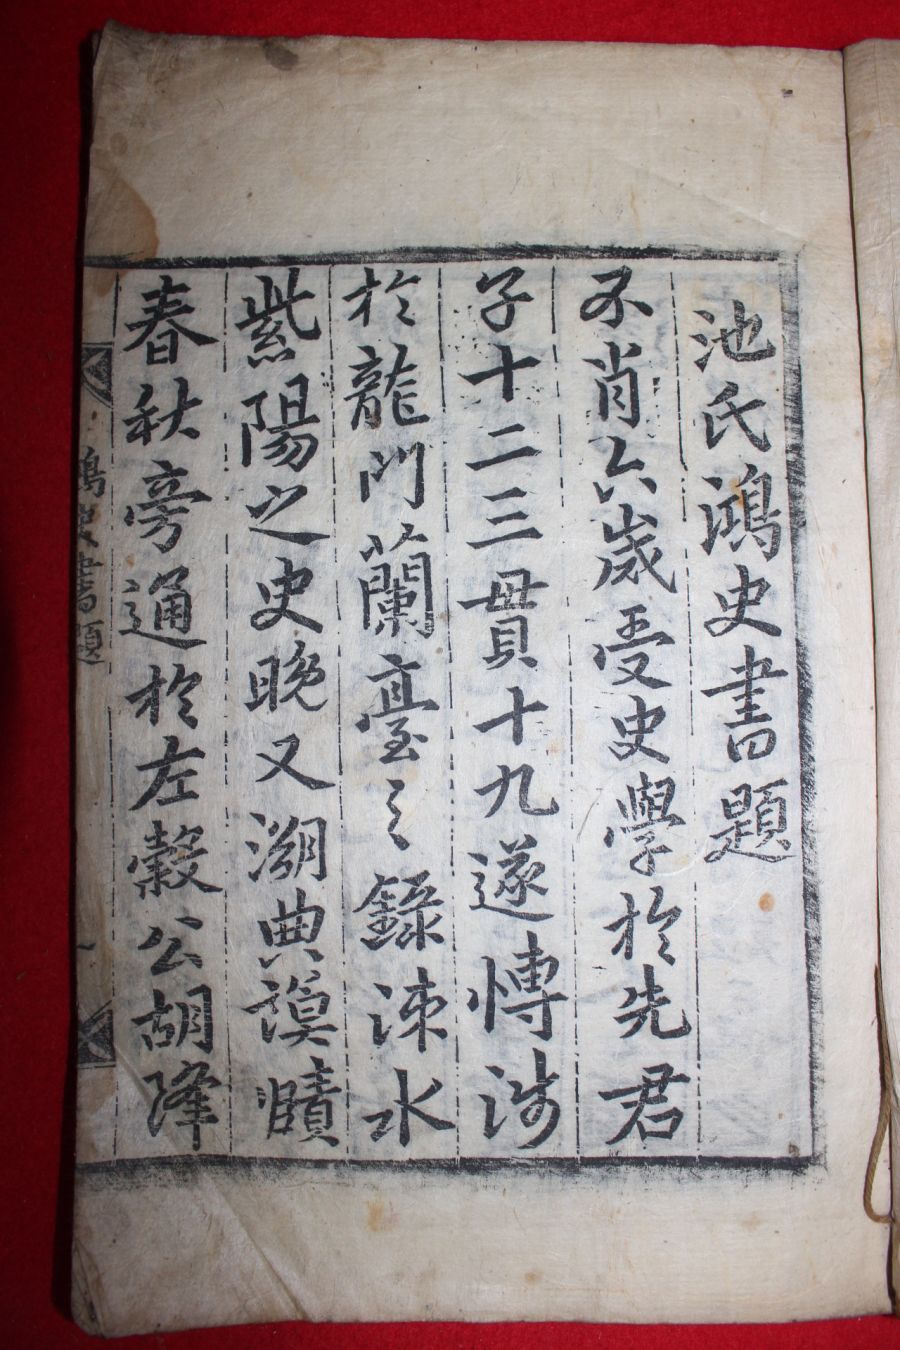 池氏鴻史書題
不肖六歲受史學於先君
子十二三貫十九遂博涉
於龍門蘭臺之錄涑水
紫陽之史晚又溯典謨賾
春秋旁通於左穀公胡降
鴻史書題 一